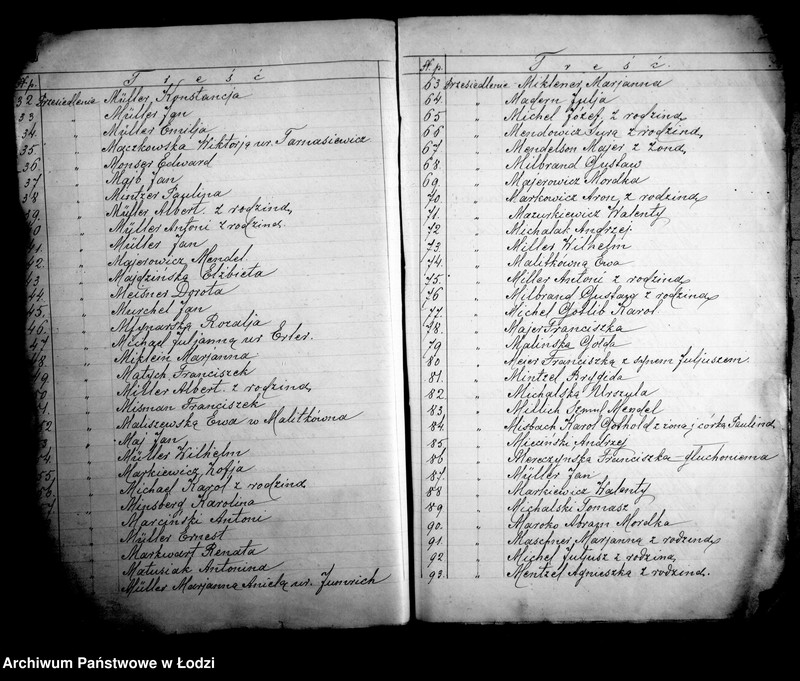 № p. T r e ś ć
32 Przesiedlenie Müller Konstancja
33 " Müller Jan
34. " Müller Emilja
35. " Mączkowska Wiktorja ur. Tamasiewicz
36. " Monser Edward
37 " Majb Jan
38 " Mintzer Paulina
39. " Müller Albert z rodziną
0 " Müller Antoni z rodziną.
41 " Müller Jan
42. " Majerowicz Mendel
43 " Majdzińska Elżbieta
44. " Meisner Dorota
45. " Murchel Jan
46. " Młynarska Rozalja
47 " Michael Juljanna ur Erler.
8 " Miklein Marjanna
49 " Matych Franciszek
" Miller Albert z rodziną
51. " Misman Franciszek
52 " Maliszewska Ewa w Malitkówna
" Maj Jan
54. " Müller Wilhelm
55, " Markiewicz Zofja
" Michael Karol z rodziną
" Minsberg Karolina
" Marciński Antoni
" Müller Ernest
" Markwart Renata
" Matusiak Antonina
" Müller Marjanna Aniela ur. Jumrich
№ p. T r e ś ć.
63 Przesiedlenie Miklener Marjanna
64. " Madern Julja
65 " Michel Józef z rodziną
66 " Mendowicz z rodziną
67 " Mendelson Majer z żoną
68 " Milbrand Gustaw
69. " Majerowicz Mordka
70. " Markowicz Aron z rodziną
71. " Mazurkiewicz Walenty
72 " Michalak Andrzej
73. " Miller Wilhelm
74. " Malitkówna Ewa
75. " Miller Antoni z rodziną
76 " Milbrand Gustaw z rodziną
77. " Michel Gotlib Karol
78 " Majer Franciszka
79 " Malinska Golda
80 " Meier Franciszka z synem Juljuszem.
81. " Mintzel Brygida
82 " Michalska Urszula
83, " Millich Szmul Mendel
84. " Misbach Karol Gothold z żoną j córką Pauliną
85, " Mieciński Andrzej
86 " Mereczynska Franciszka - głuchoniema
87. " Müller Jan
88 " Markiewicz Walenty
89 " Michalski Tomasz
90. " Maroko Abram Mordka
91. " Maschner Marjanna z rodziną
92 " Michel Juljusz z rodziną
93. " Mentzel Agnieszka z rodziną.
Archiwum Państwowe w Łodzi